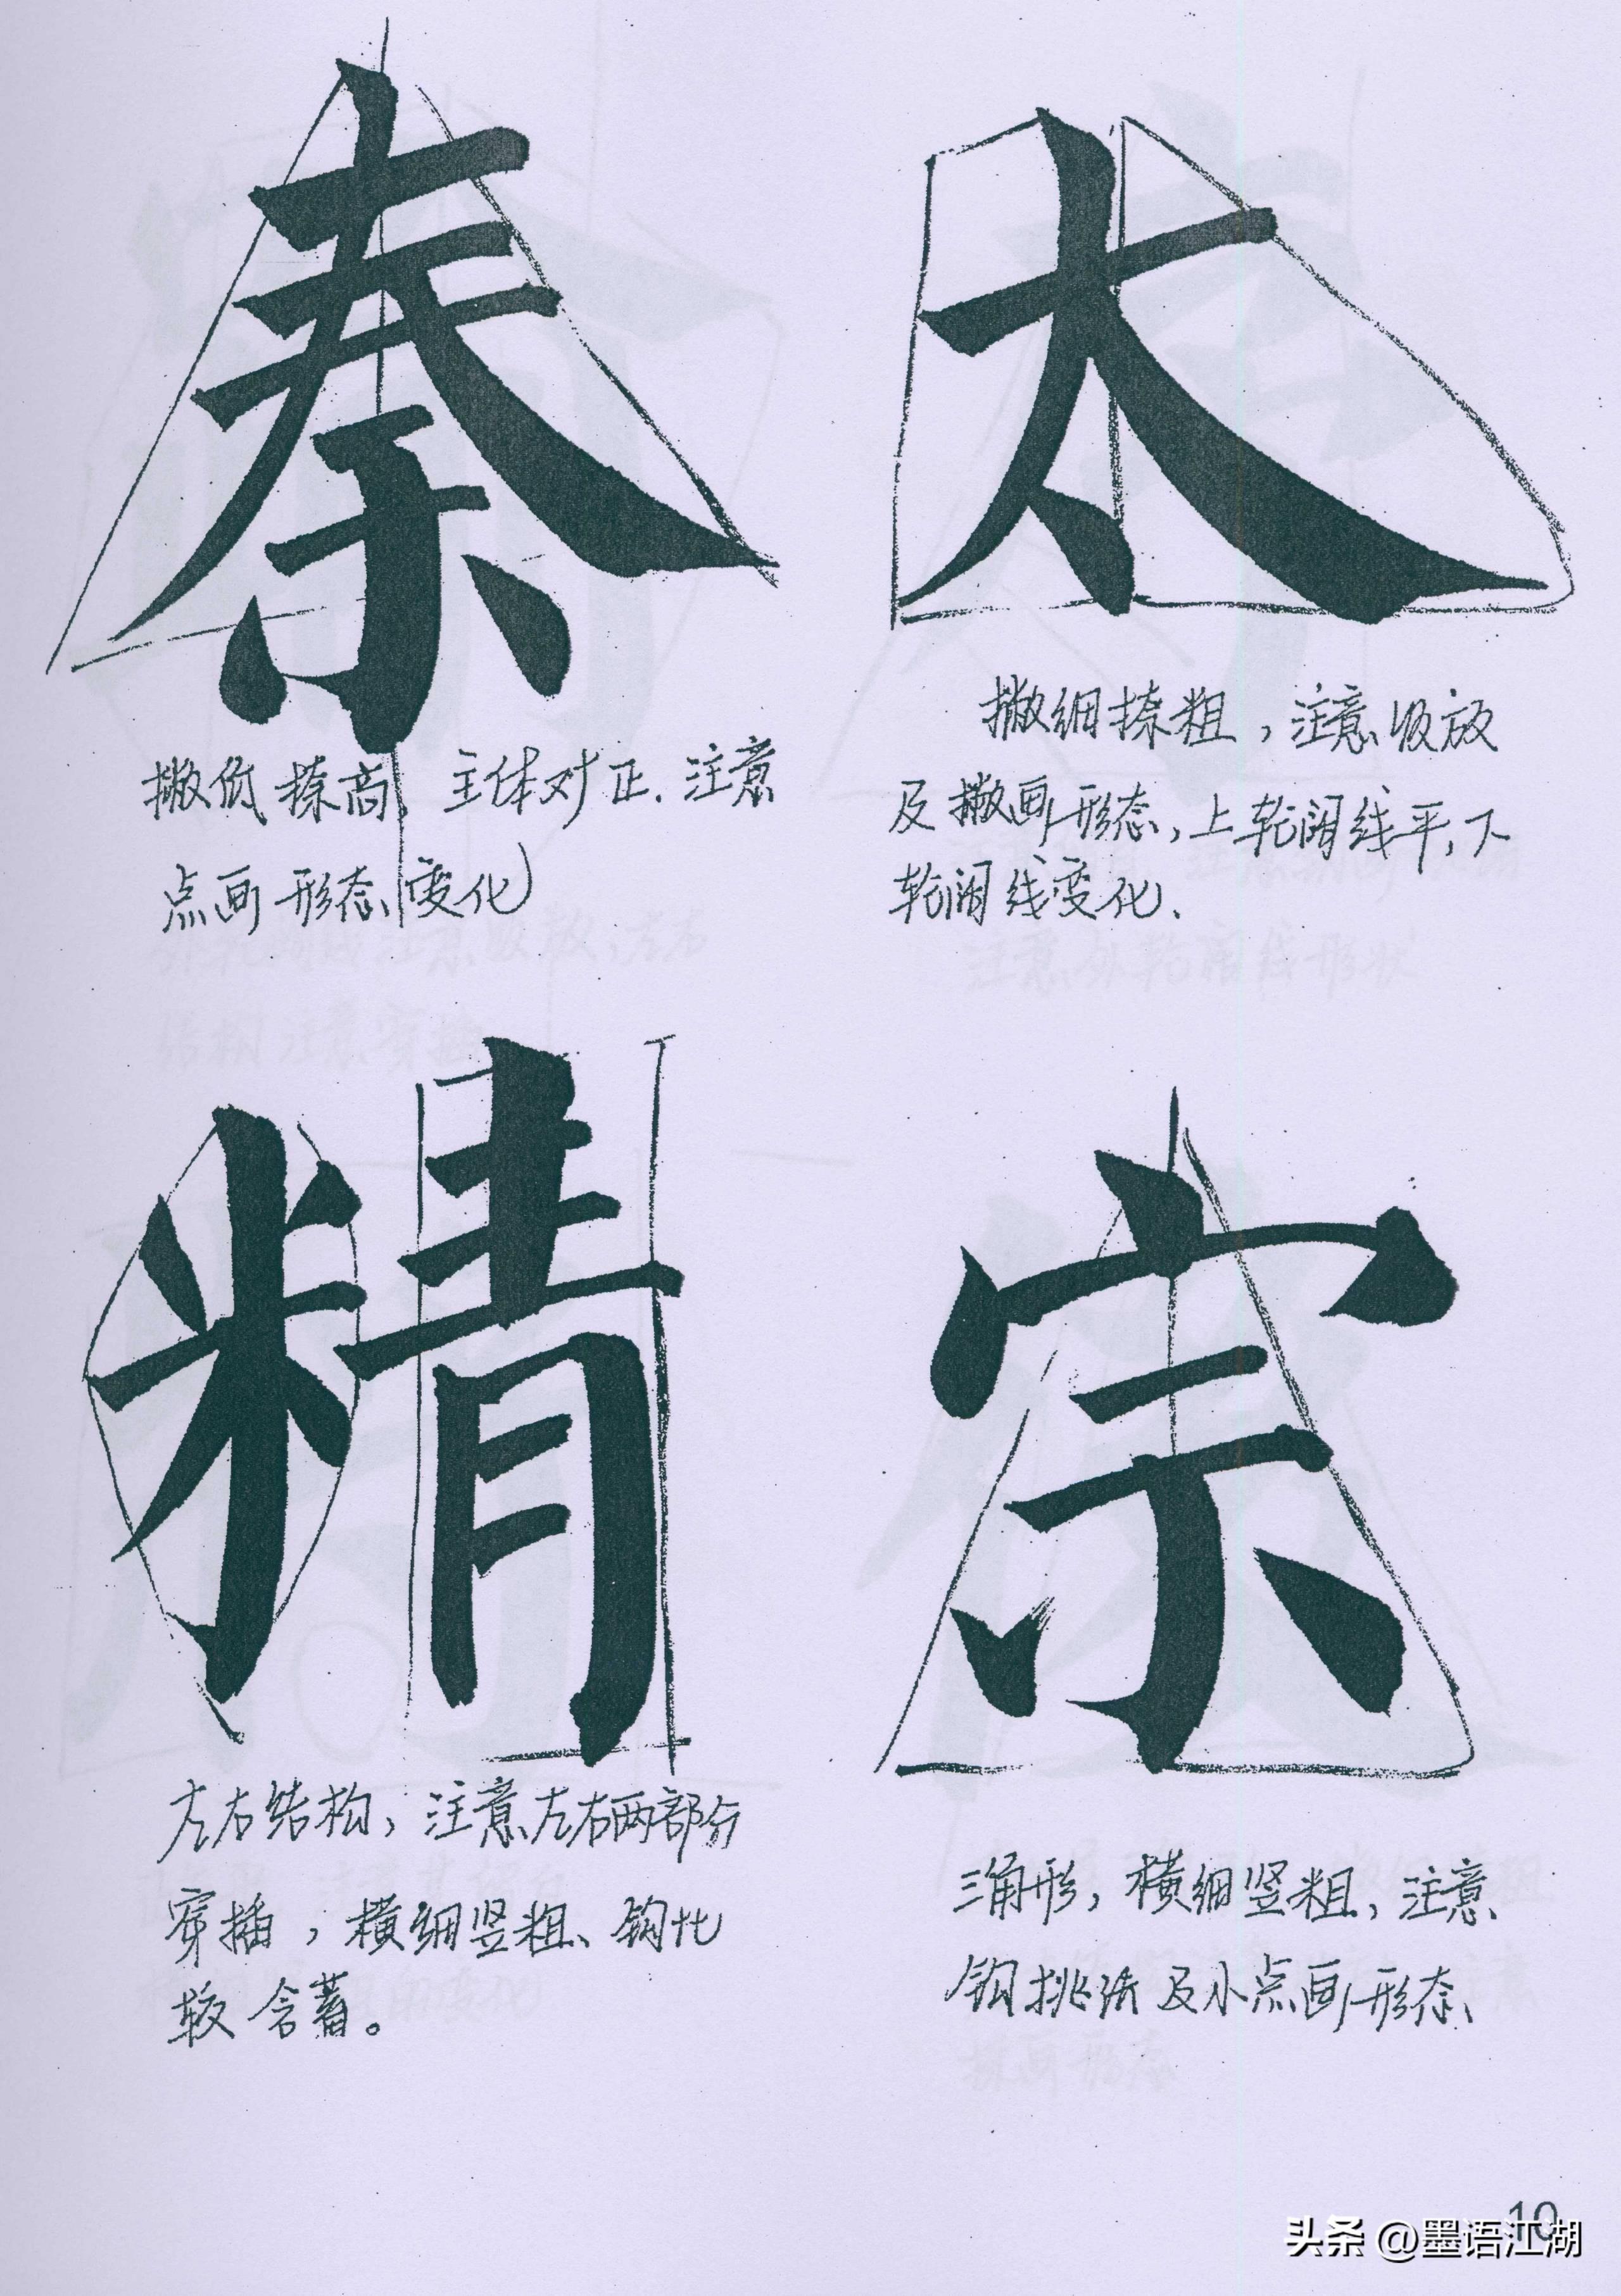 秦
撇低捺高，主体对正，注意
点画形态变化
太
撇细捺粗，注意收放
及撇画形态，上轮阔线平，下
轮阔线变化、
精
左右结构，注意左右两部分
穿插，横细竖粗、钩比
较含蓄。
宗
三角形，横细竖粗，注意
钩挑法及小点画形态、
10
头条 @墨语江湖